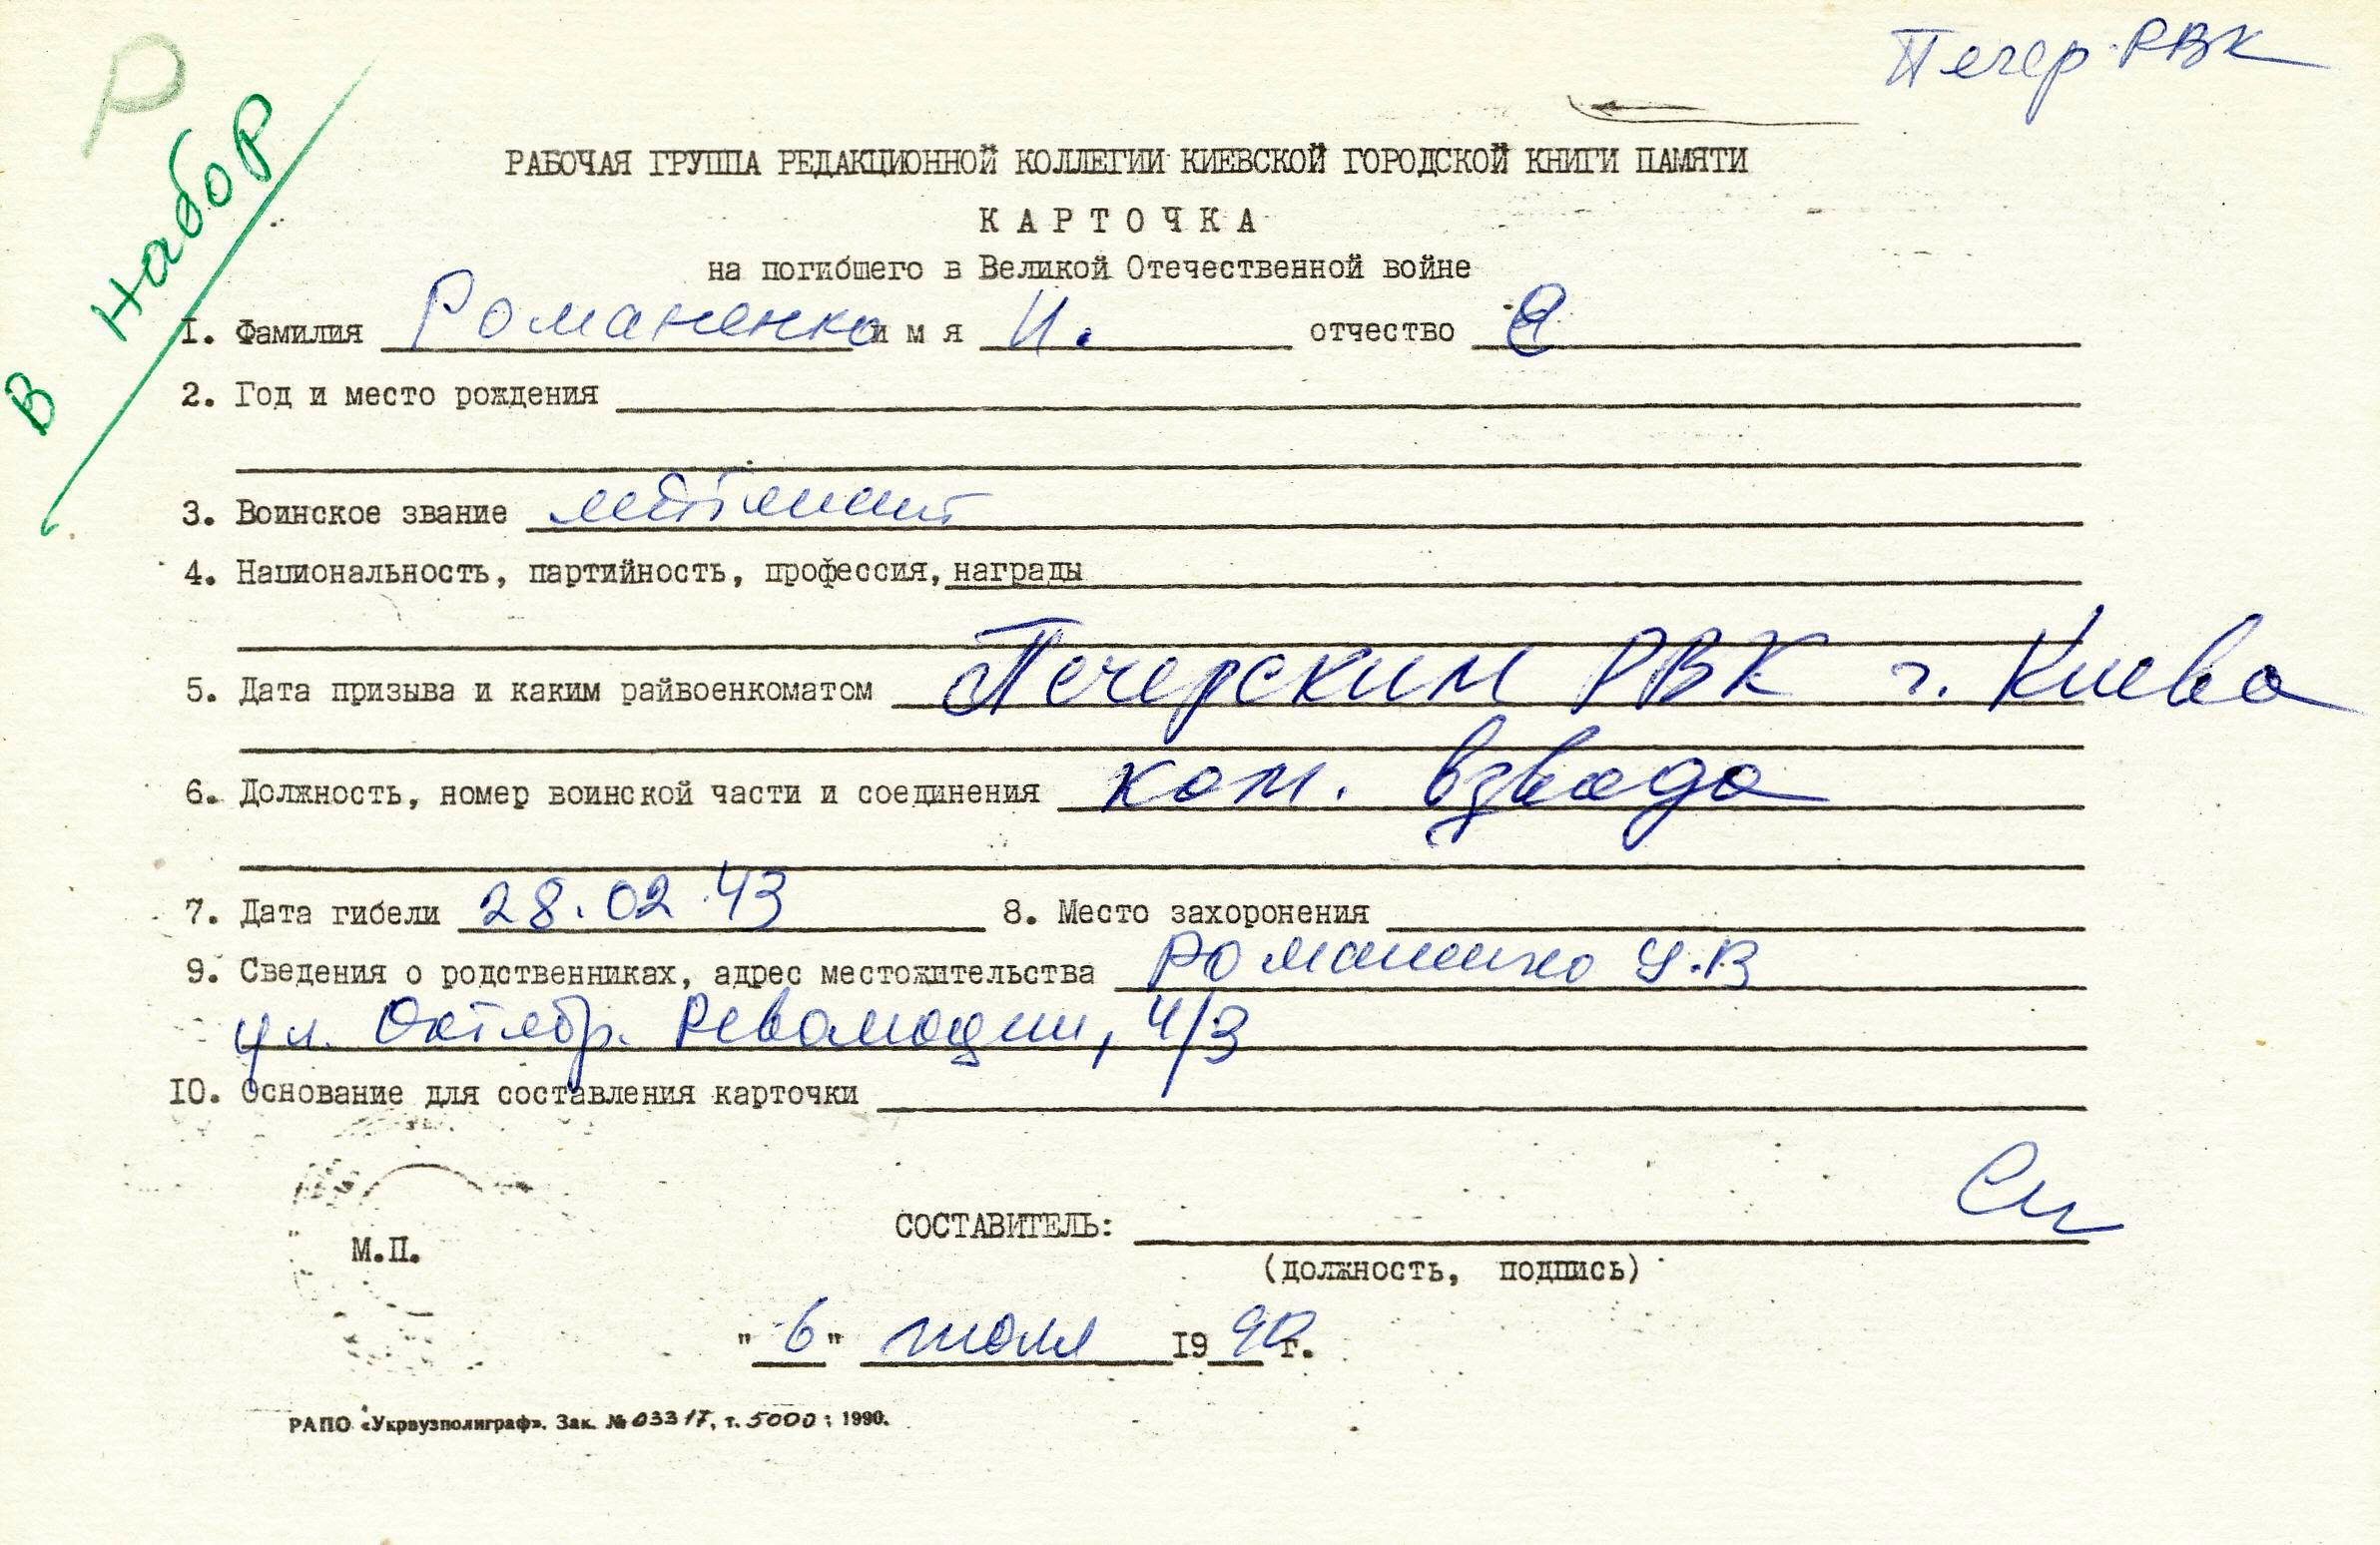 Р
В набор
Печер. РВК
РАБОЧАЯ ГРУППА РЕДАКЦИОННОЙ КОЛЛЕГИИ КИЕВСКОЙ ГОРОДСКОЙ КНИГИ ПАМЯТИ
КАРТОЧКА
на погибшего в Великой Отечественной войне
1. Фамилия Романенко имя И. отчество
2. Год и место рождения
3. Воинское звание
4. Национальность, партийность, профессия, награды
5. Дата призыва и каким райвоенкоматом Печерским РВК г. Киева
6. Должность, номер воинской части и соединения ком. взвода
7. Дата гибели 28.02.43 8. Место захоронения
9. Сведения о родственниках, адрес местожительства Романенко У.В
ул. Октябр. Революции, 4/3
10. Основание для составления карточки
СОСТАВИТЕЛЬ:
М.П.
(должность, подпись)
"6" июля 1990 г.
РАПО «Укрвузполиграф». Зак. № 03317, т. 5000; 1990.